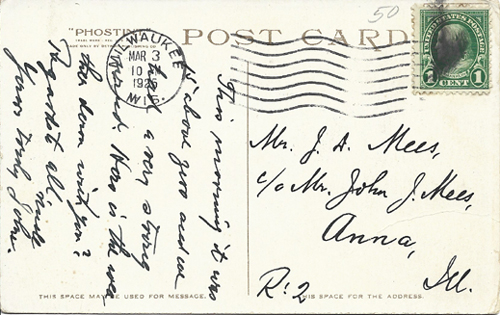 50
"PHOSTINT"
POST CARD
MILWAUKEE
MAR 3
10
1926
WIS.
UNITED STATES POSTAGE
1 CENT 1
This morning it was
above zero and we
had a very strong
wind. How is the wea
ther down with you?
Regards to all,
Yours truly, John.
Mr. J. A. Mees,
c/o Mr. John J. Mees,
Anna,
R. 2 Ill.
THIS SPACE MAY BE USED FOR MESSAGE.
THIS SPACE IS FOR THE ADDRESS.